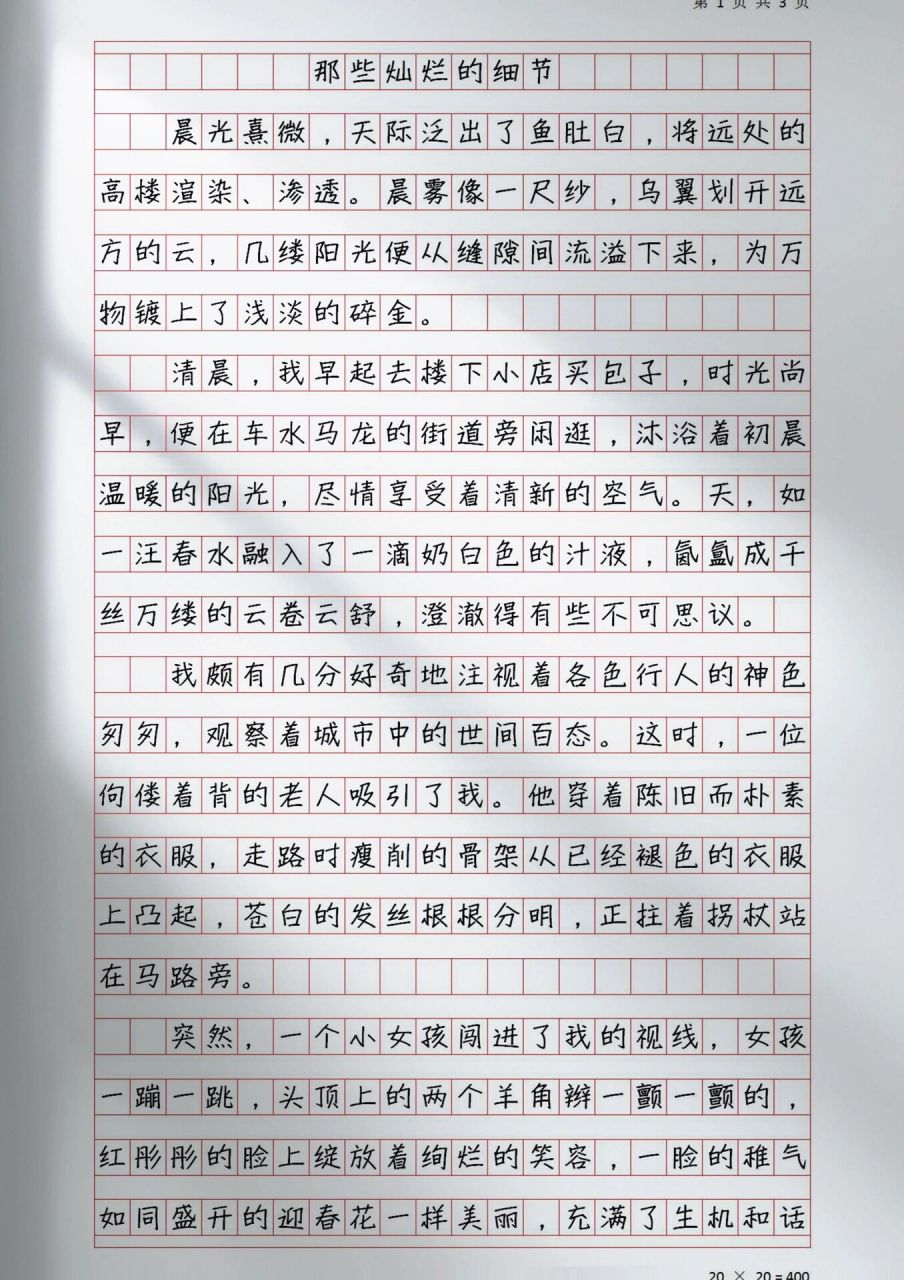 第 1 页 共 3 页
那些灿烂的细节
晨光熹微，天际泛出了鱼肚白，将远处的
高楼渲染、渗透。晨雾像一尺纱，鸟翼划开远
方的云，几缕阳光便从缝隙间流溢下来，为万
物镀上了浅淡的碎金。
清晨，我早起去楼下小店买包子，时光尚
早，便在车水马龙的街道旁闲逛，沐浴着初晨
温暖的阳光，尽情享受着清新的空气。天，如
一汪春水融入了一滴奶白色的汁液，氤氲成千
丝万缕的云卷云舒，澄澈得有些不可思议。
我颇有几分好奇地注视着各色行人的神色
匆匆，观察着城市中的世间百态。这时，一位
佝偻着背的老人吸引了我。他穿着陈旧而朴素
的衣服，走路时瘦削的骨架从已经褪色的衣服
上凸起，苍白的发丝根根分明，正拄着拐杖站
在马路旁。
突然，一个小女孩闯进了我的视线，女孩
一蹦一跳，头顶上的两个羊角辫一颤一颤的，
红彤彤的脸上绽放着绚烂的笑容，一脸的稚气
如同盛开的迎春花一样美丽，充满了生机和活
20 × 20 = 400